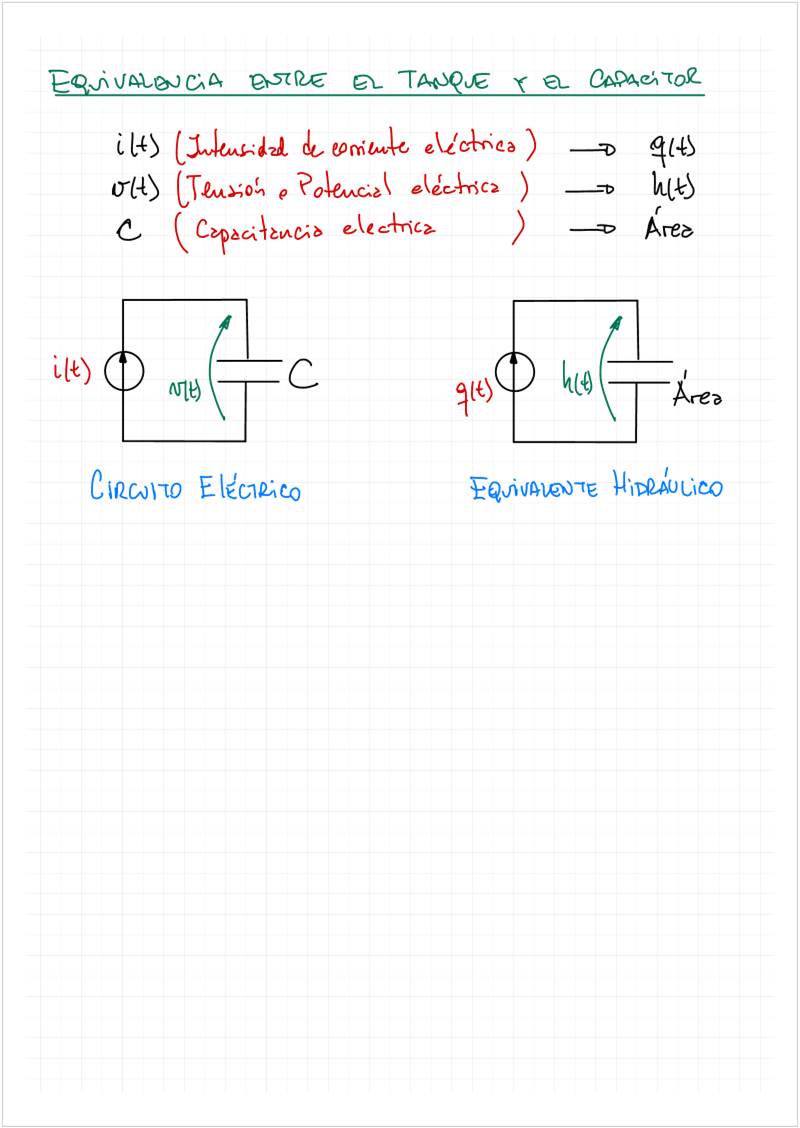 EQUIVALENCIA ENTRE EL TANQUE Y EL CAPACITOR
i(t) (Intensidad de corriente eléctrica) → q(t)
v(t) (Tensión o Potencial eléctrica) → h(t)
C (Capacitancia electrica) → Área
i(t) v(t) C
q(t) h(t) Área
CIRCUITO ELÉCTRICO
EQUIVALENTE HIDRÁULICO